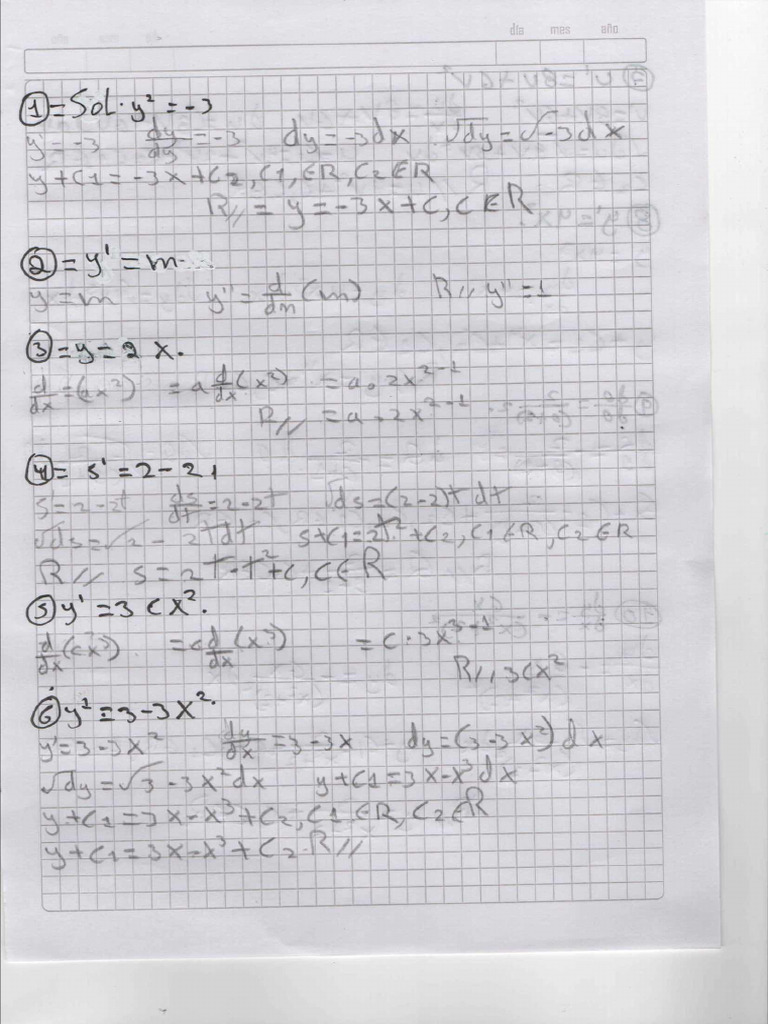 día mes año
① = Sol. y² = -3
y' = -3 dy/dy = -3 dy = -3dx √dy = √-3dx
y + C1 = -3x + C2, C1, ∈R, C2 ∈R
R// = y = -3x + C, C ∈ R
② = y' = m
y = m y'' = d/dm (m) R// y'' = 1
③ = y = 2 x.
d/dx = (ax²) = a d/dx (x²) = a. 2x²⁻¹
R// = a . 2x²⁻¹
④ = s' = 2 - 2,
s' = 2 - 2t ds/dt = 2 - 2t √ds = (2-2)t dt
√ds = √2 - 2t dt s + C1 = 2t-t² + C2, C1 ∈R, C2 ∈ R
R// s = 2t - t² + C, C∈R
⑤ y' = 3 cx².
d/dx (cx³) = c d/dx (x³) = c . 3x³⁻¹
R// 3cx²
⑥ y² = 3 - 3x².
y' = 3 - 3x² dy/dx = 3 - 3x dy = (3 - 3x²) dx
√dy = √3 - 3x² dx y + C1 = 3x - x³ dx
y + C1 = 3x - x³ + C2, C1 ∈R, C2 ∈R
y + C1 = 3x - x³ + C2 . R//